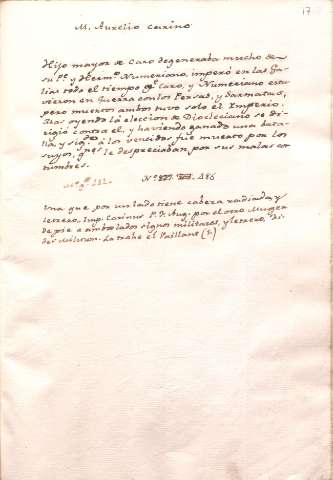 17
M. Aurelio Carino
Hijo mayor de Caro degeneraba mucho de
su Pe. y Herm.º Numeriano, imperó en las Ga-
lias todo el tiempo qe. Caro, y Numeriano estu
vieron en Guerra con los Persas, y Sarmatas,
pero muertos ambos tuvo solo el Imperio.
Mas oyendo la eleccion de Diocleciano se di-
rigió contra el, y haviendo ganado una bata-
lla, y siguiendo a los vencidos fue muerto por los
suyos, qnes. le despreciaban por sus malas cos
tumbres.
282. Nº 486
Una que por un lado tiene cabeza radiada, y
letrero, Imp. Carinus P. F. Aug. por el otro Muger
de pie a ambos lados signos militares, y letrero, Fi-
des Militum. La trahe el Vaillant